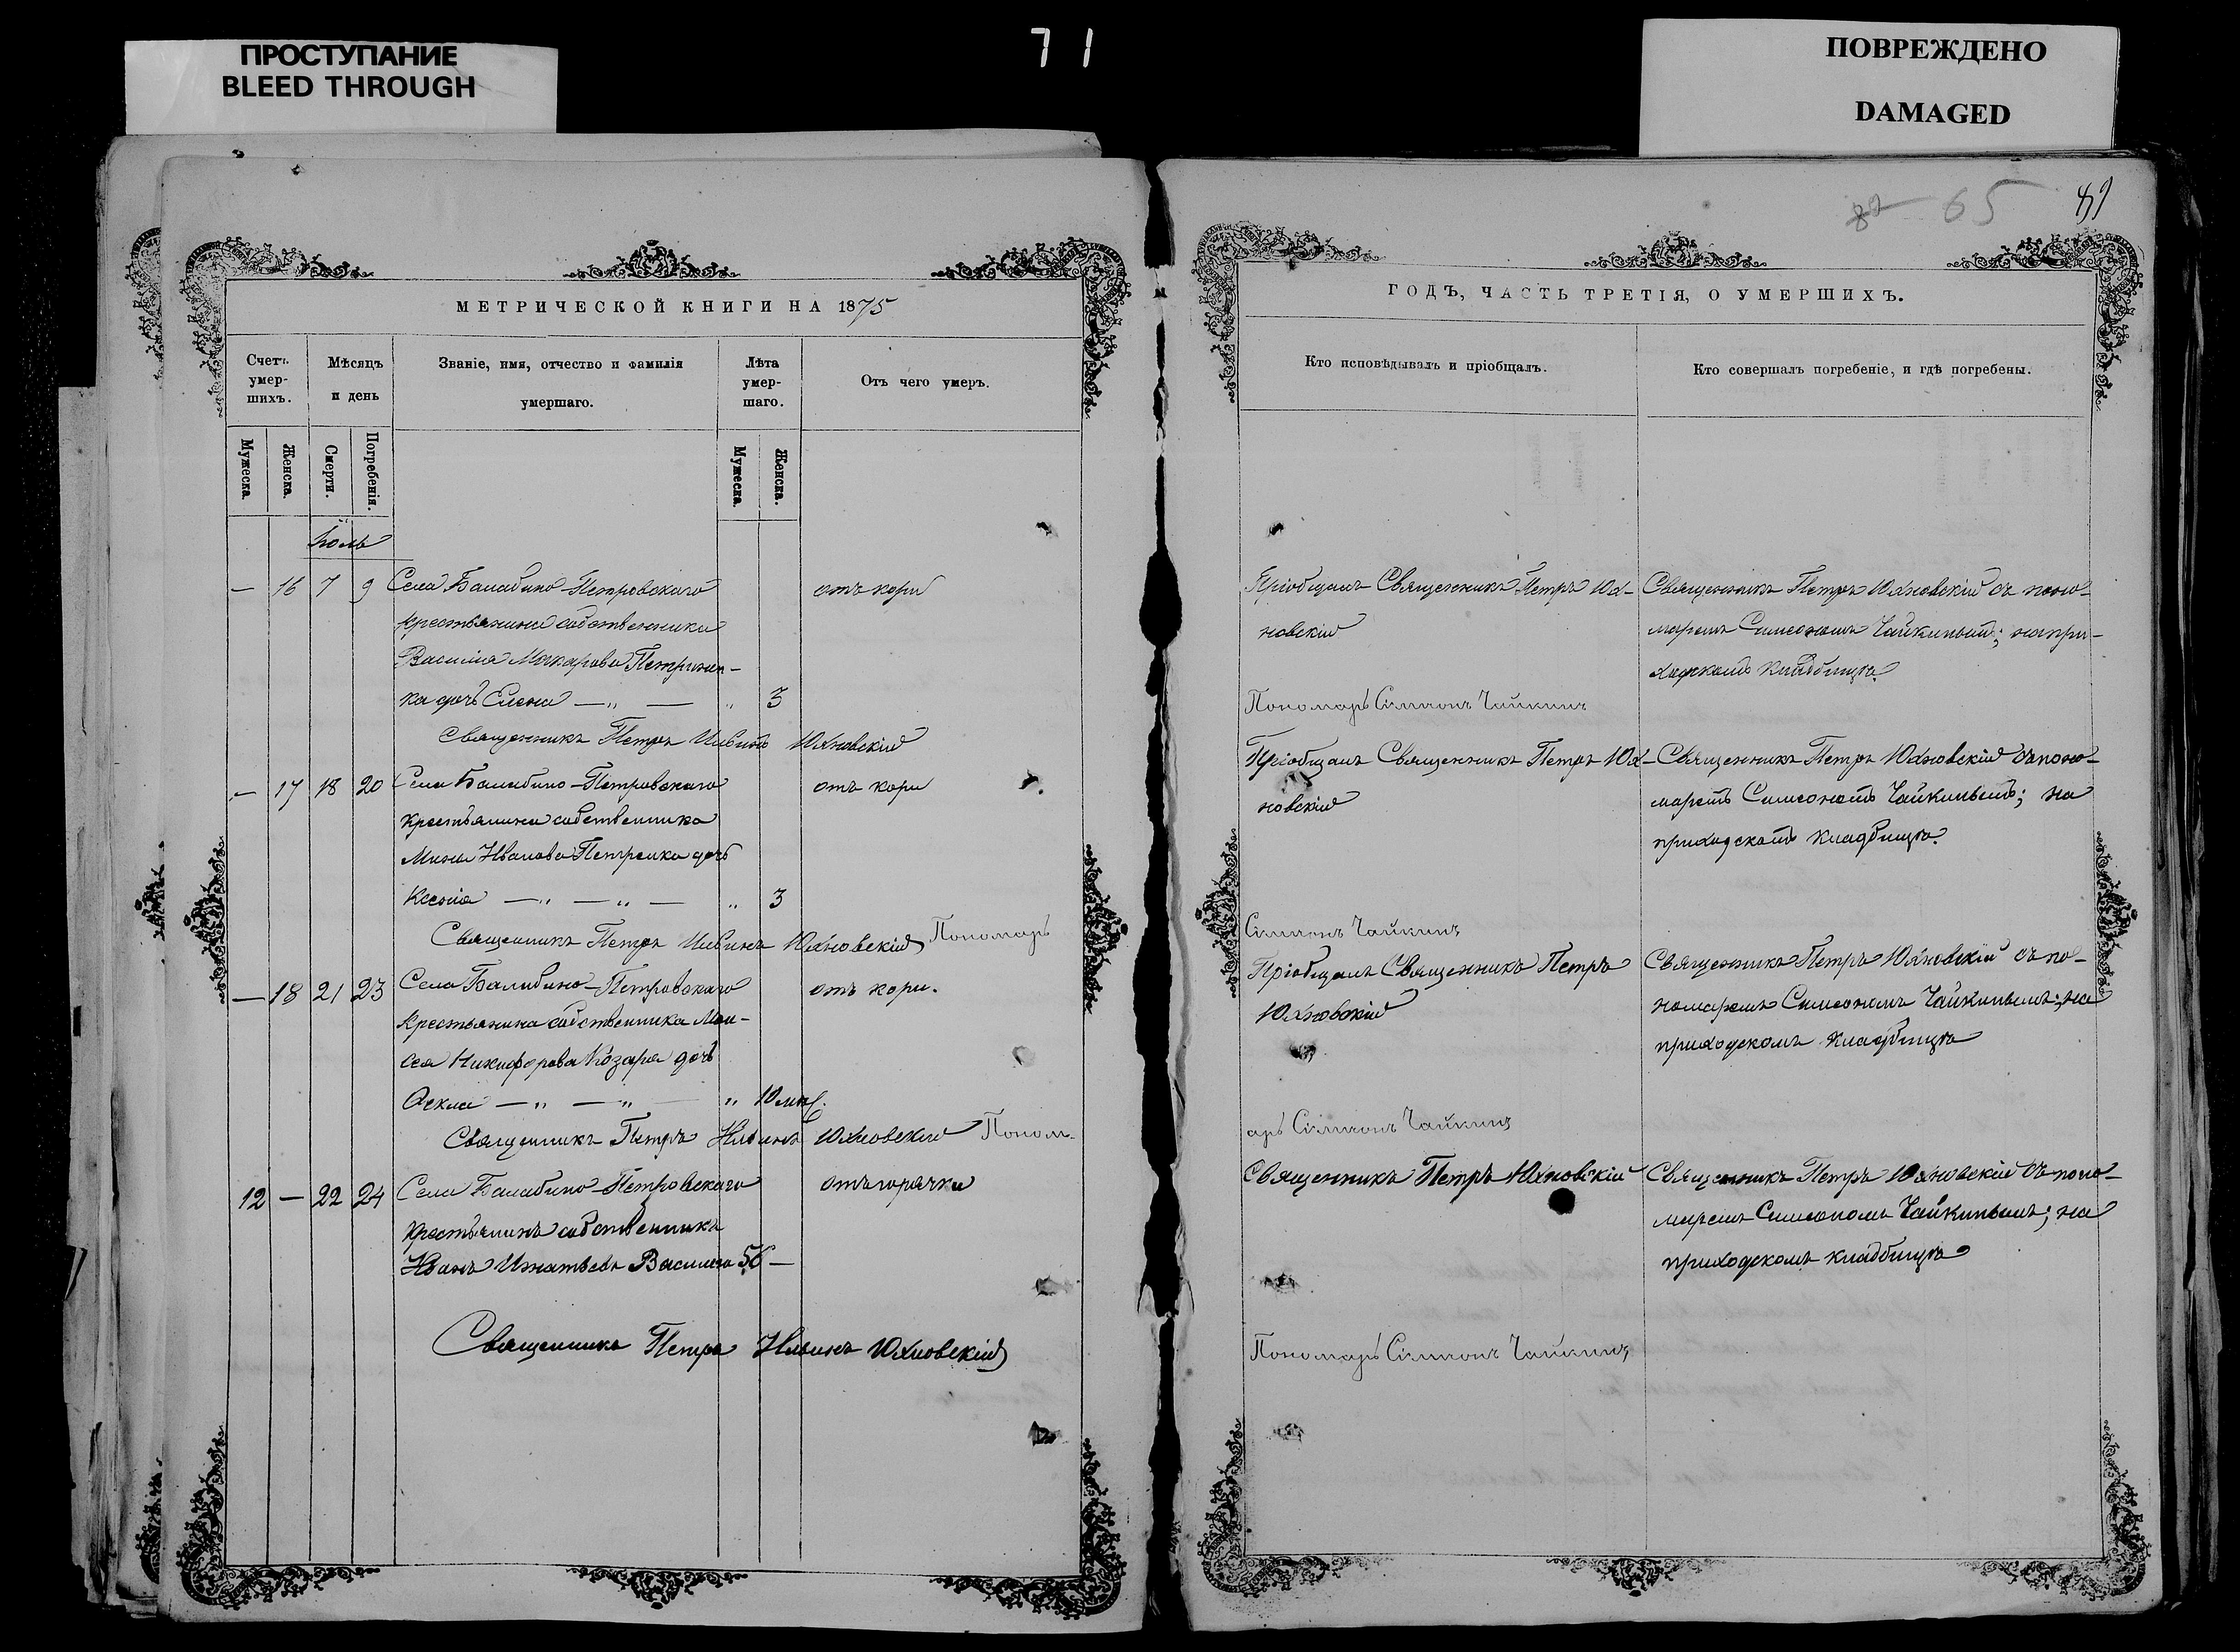 ПРОСТУПАНИЕ
BLEED THROUGH
71
ПОВРЕЖДЕНО
DAMAGED
65
МЕТРИЧЕСКОЙ КНИГИ НА 1875
Счетъ умер-шихъ.
Мѣсяцъ и день
Званіе, имя, отчество и фамилія умершаго.
Лѣта умер-шаго.
Отъ чего умеръ.
Мужеска.
Женска.
Смерти.
Погребенія.
Мужеска.
Женска.
Іюль
— 16 7 9 Села Балабино-Петровскаго отъ кори
крестьянина собственника
Василія Макарова Петринен-
ка дочь Елена — „ — „ 3
Священникъ Петръ Ильинъ Юхновскій
— 17 18 20 Села Балабино-Петровскаго отъ кори
крестьянина собственника
Мины Иванова Петренка дочь
Ксенія — „ — „ — „ 3
Священникъ Петръ Ильинъ Юхновскій Пономарь
— 18 21 23 Села Балабино-Петровскаго отъ кори.
крестьянина собственника Мои-
сея Никифорова Козаря дочь
Ѳекла — „ — „ — „ 10 мѣс.
Священникъ Петръ Ильинъ Юхновскій Поном-
12 — 22 24 Села Балабино-Петровскаго отъ горячки
крестьянинъ собственникъ
Иванъ Игнатьевъ 56 —
Священникъ Петръ Ильинъ Юхновскій
ГОДЪ, ЧАСТЬ ТРЕТІЯ, О УМЕРШИХЪ.
Кто исповѣдывалъ и пріобщалъ.
Кто совершалъ погребеніе, и гдѣ погребены.
Пріобщалъ Священникъ Петръ Юх- Священникъ Петръ Юхновскій съ поно-
новскій маремъ Симеономъ Чайкинымъ; на при-
ходскомъ кладбищѣ.
Пономарь Симеонъ Чайкинъ
Пріобщалъ Священникъ Петръ Юх- Священникъ Петръ Юхновскій съ поно-
новскій маремъ Симеономъ Чайкинымъ; на
приходскомъ кладбищѣ.
Симеонъ Чайкинъ
Пріобщалъ Священникъ Петръ Священникъ Петръ Юхновскій съ по-
Юхновскій номаремъ Симеономъ Чайкинымъ; на
приходскомъ кладбищѣ
арь Симеонъ Чайкинъ
Священникъ Петръ Юхновскій Священникъ Петръ Юхновскій съ поно-
маремъ Симеономъ Чайкинымъ; на
приходскомъ кладбищѣ
Пономарь Симеонъ Чайкинъ